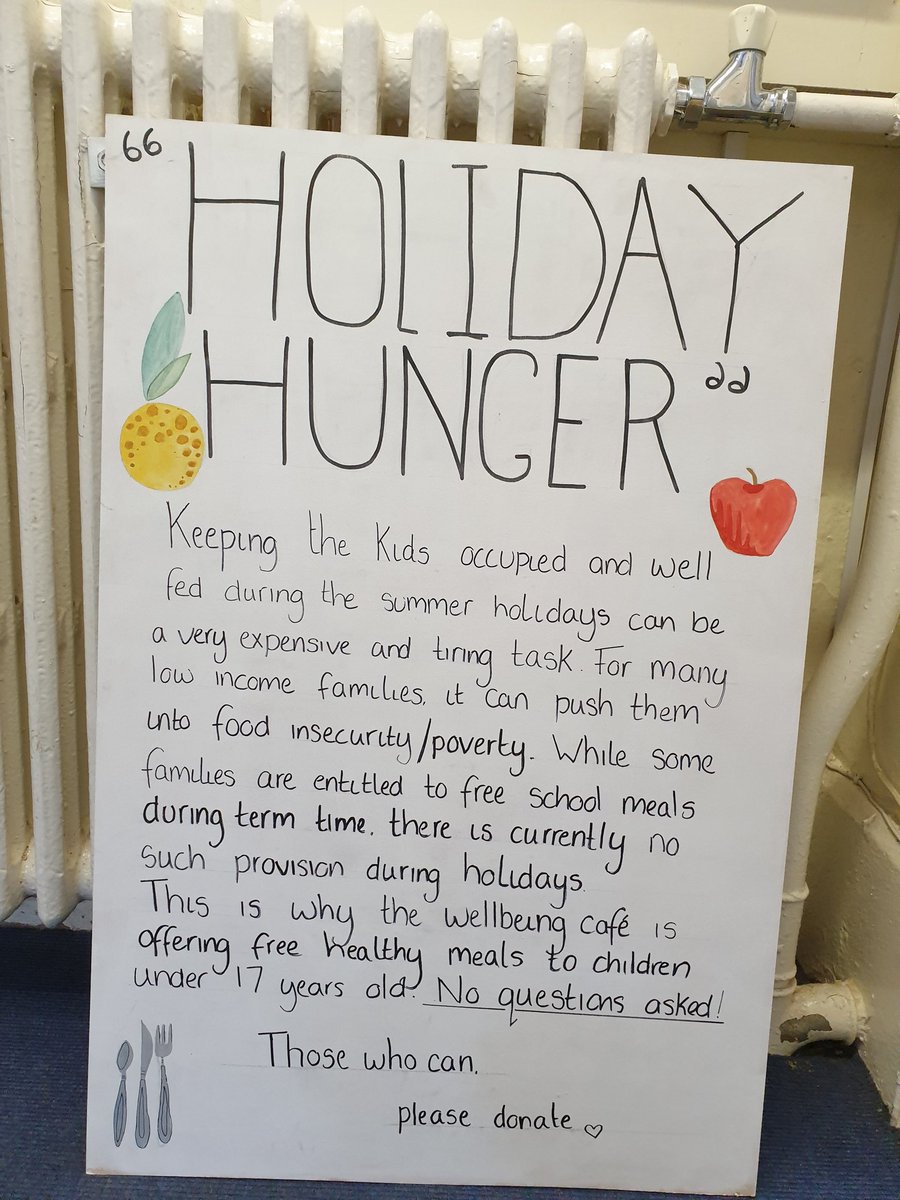 “HOLIDAY
HUNGER”
Keeping the Kids occupied and well
fed during the summer holidays can be
a very expensive and tiring task. For many
low income families, it can push them
into food insecurity/poverty. While some
families are entitled to free school meals
during term time, there is currently no
such provision during holidays.
This is why the wellbeing café is
offering free healthy meals to children
under 17 years old. No questions asked!
Those who can,
please donate ♡